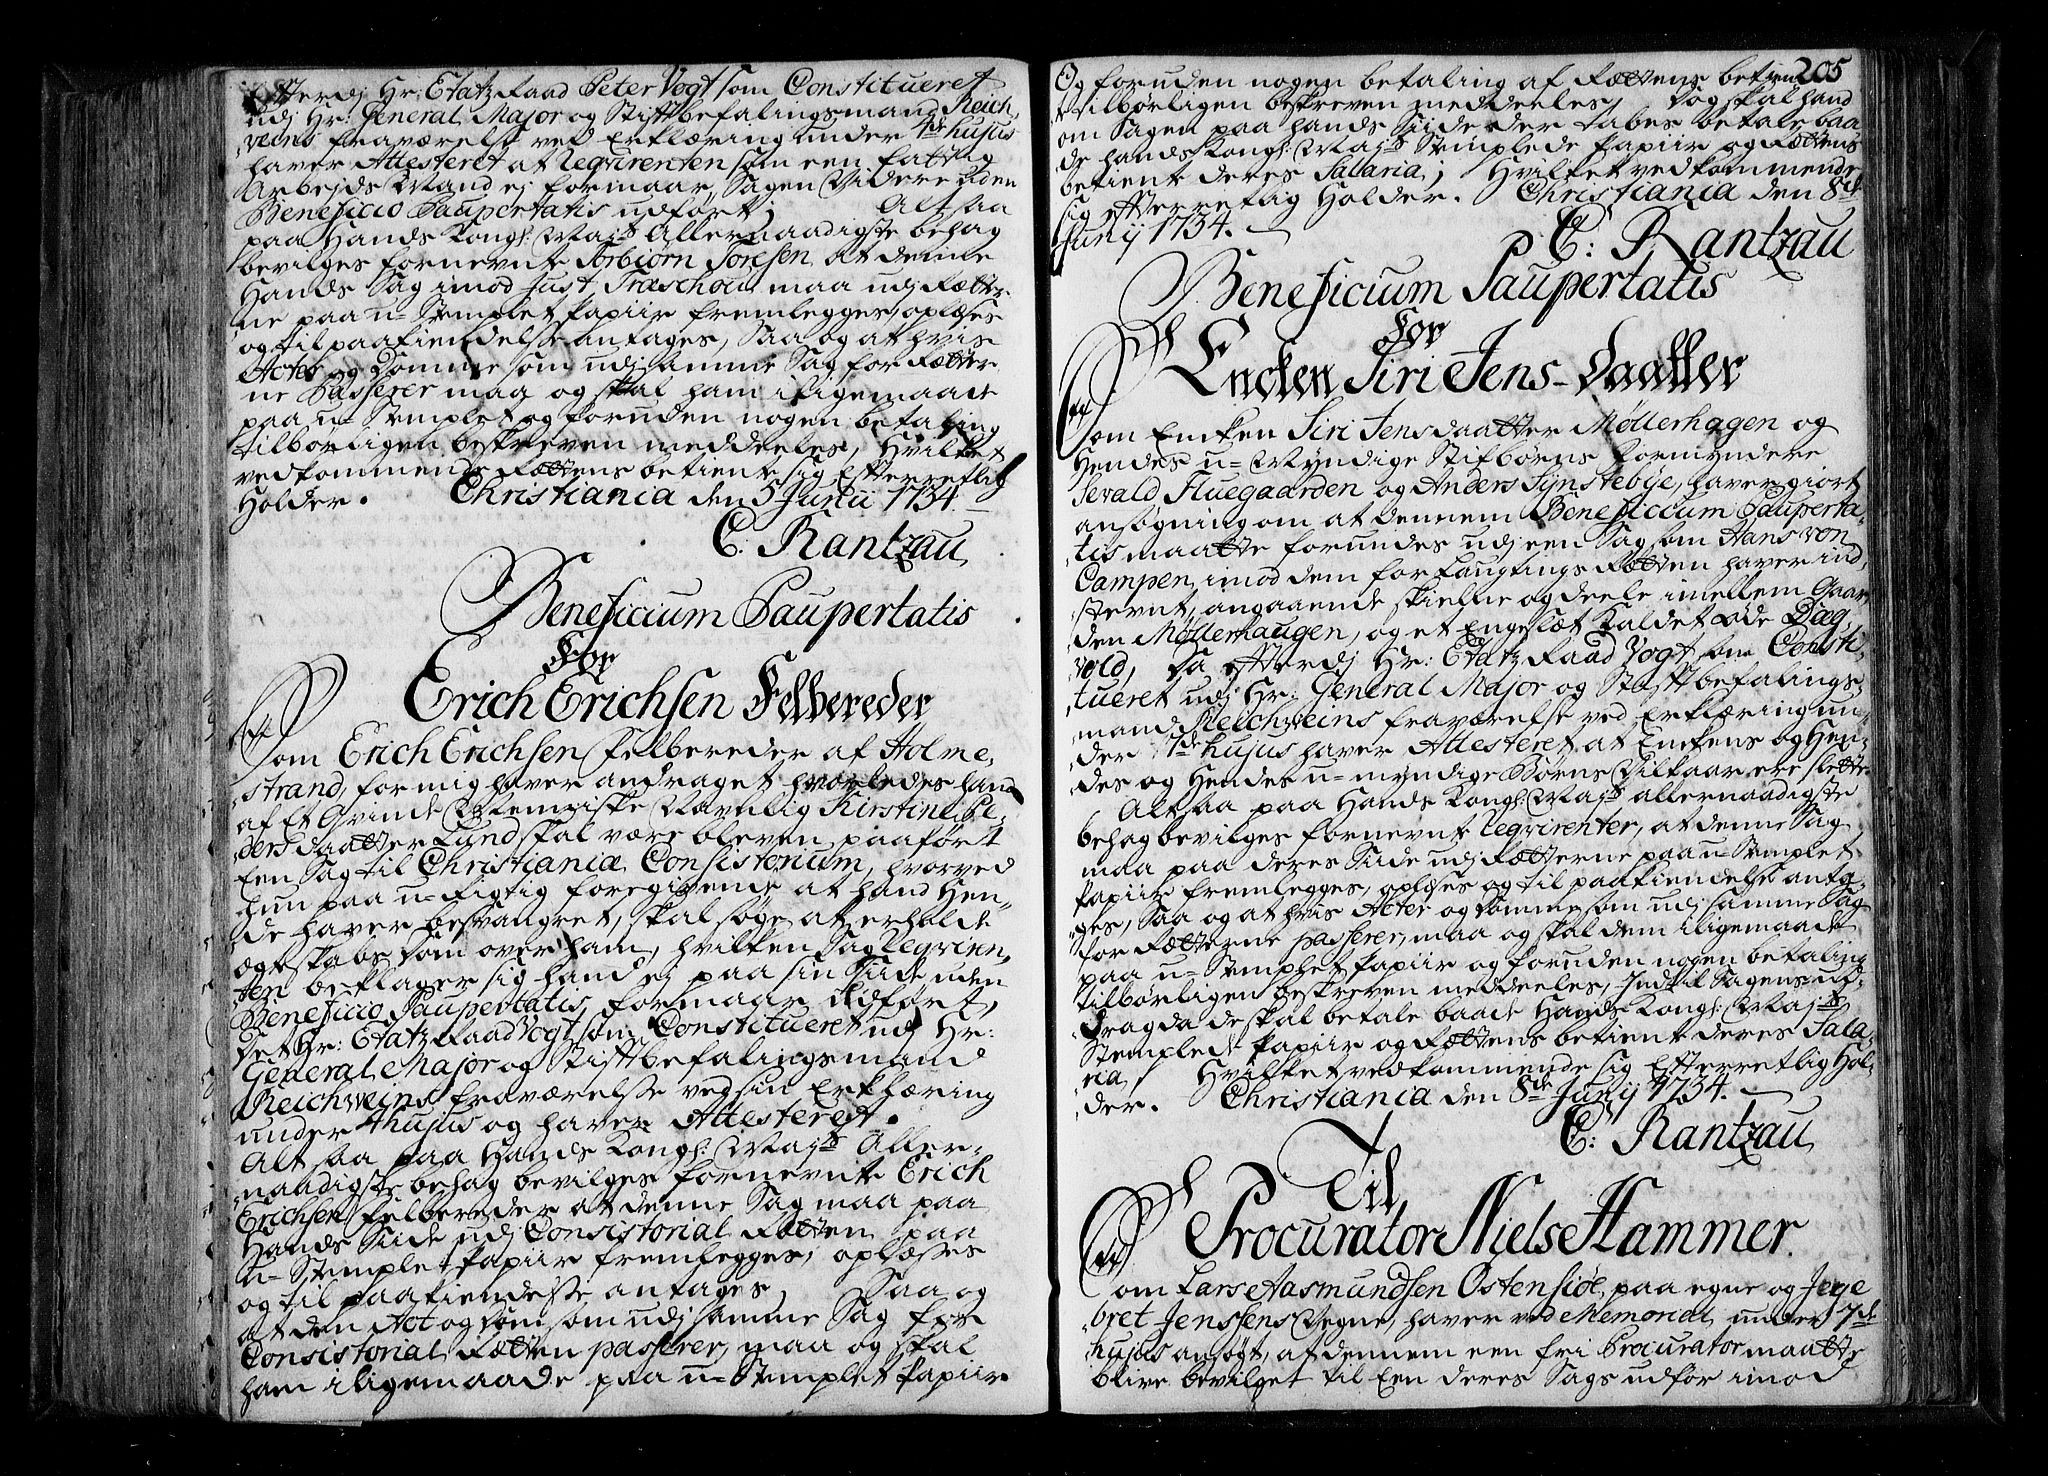 Efterdj Hr: Etatz Raad Peter Vogt som Constitueret
udj Hr: General Major og Stiftbefalingsmand Reich-
veins fraværelse ved Erklæring under 1de hujus
haver Attesteret at Reqvirenten som een fattig
Arbejds Mand ej formaar Sagen Videre uden
Beneficio Paupertatis udført; Alt saa
paa Hands Kongl: Mayts Allernaadigste behag
bevilges fornevnte Torbiørn Toresen at denne
Hands Sag imod Just Træschou maa udj Rætter-
ne paa u-Stemplet Papiir fremlegges, oplæses
og til paakiendelse antages, Saa og at hvis
Acter og Domme som udj samme Sag for Rætter
ne Passerer maa og skal ham iligemaade
paa u-Stemplet og foruden nogen betaling
tilbørligen beskreven meddeeles, Hvilket
vedkommende Rættens betiente sig Efterretlig
Holder. Christiania den 5 Junii 1734.
C: Rantzau
Beneficium Paupertatis
For
Erich Erichsen Felbereder
Som Erich Erichsen Felbereder af Holme-
strand, for mig haver andraget hvorledes hand
af Et Qvinde Menniske Navnlig Kirstine Pe-
ders daatter Lund skal være bleven paaført
Een Sag til Christiania Consistorium, hvorved
hun paa u-rigtig foregivende at hand Hen-
de haver besvangret, skal søge at erholde
ægteskabs Dom over ham, hvilken Sag Reqviren-
ten beklager sig hand ej paa sin Siide uden
Beneficio Paupertatis formaar udført,
Det Hr: Etatz Raad Vogt som Constitueret udj Hr:
General Major og Stiftbefalingsmand
Reichweins fraværelse ved sin Erklæring
under 4 hujus og haver Attesteret.
Alt saa paa Hands Kongl: Mayts Aller-
naadigste behag bevilges fornevnte Erich
Erichsen Felbereder at denne Sag maa paa
Hands Siide udj Consistorial Rætten paa
u-Stemplet Papiir fremlegges, oplæses
og til paakiendelse antages, Saa og
at den Act og Dom som udj samme Sag for
Consistorial Rætten passerer, maa og skal
ham iligemaade paa u-Stemplet Papiir
205
Og foruden nogen betaling af Rættens betiente
tilbørligen beskreven meddeeles, Dog skal hand
om Sagen paa hands Siide der tabes betale baa
de hands Kongl: Mayts Stemplede Papiir og Rættens
betiente deres Salaria; Hvilket vedkommende
sig efterretlig Holder. Christiania den 8de
Junij 1734.
C: Rantzau
Beneficium Paupertatis
For
Encken Siri Jens-Daatter
Som Encken Siri Jensdaatter Møllerhagen og
Hendes u-Myndige Stifbørns Formyndere
Sevald Fluegaarden og Anders Synstebye, haver giort
ansøgning om at dennem Beneficium Pauperta-
tis maatte forundes udj een Sag som Hans von
Campen imod dem for Laugtings Rætten haver ind-
stevnt, angaaende skielne og deele imellem Gaar-
den Møllerhaugen, og et Engeslæt kaldet øde Dæg-
vold, Da efterdj Hr: Etatz Raad Vogt som Consti-
tueret udj Hr: General Major og Stiftbefalings-
mand Reichweins fraværelse ved Erklæring un-
der 1de hujus haver Attesteret at Enckens og Hen-
des og Hendes u-myndige Børns Vilkaar ere slette.
Alt saa paa Hands Kongl: Mayts allernaadigste
behag bevilges fornevnte Reqvirenter, at denne Sag
maa paa deres Siide udj Rætterne paa u-Stemplet
Papiir fremlegges, oplæses og til paakiendelse anta-
ges, Saa og at hvis Acter og Domme som udj samme Sag
for Rætterne passerer, maa og skal dem iligemaade
paa u-Stemplet Papiir og foruden nogen betaling
tilbørligen beskreven meddeeles, Indtil Sagens ud-
drag da de skal betale baade Hands Kongl: Mayts
Stemplede Papiir og Rættens betiente deres Sala-
ria, Hvilket vedkommende sig Efterretlig Hol-
der. Christiania den 8de Junij 1734.
C: Rantzau
Til
Procurator Niels Hammer.
Som Lars Aasmundsen Ostensiøe, paa egne og Jege
bret Jenssens Vegne, haver ved Memorial under 7de
hujus ansøgt, at dennem een fri Procurator maatte
blive bevilget til Een deres Sags udfør imod